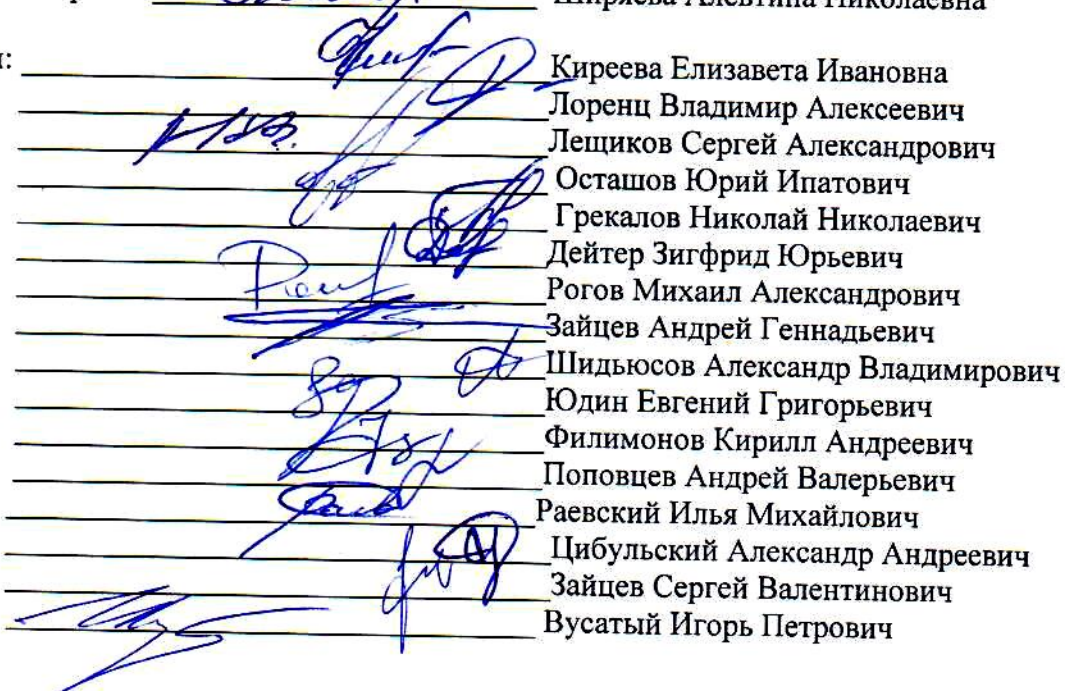 Ширяева Алевтина Николаевна
Киреева Елизавета Ивановна
Лоренц Владимир Алексеевич
Лещиков Сергей Александрович
Осташов Юрий Ипатович
Грекалов Николай Николаевич
Дейтер Зигфрид Юрьевич
Рогов Михаил Александрович
Зайцев Андрей Геннадьевич
Шидьюсов Александр Владимирович
Юдин Евгений Григорьевич
Филимонов Кирилл Андреевич
Поповцев Андрей Валерьевич
Раевский Илья Михайлович
Цибульский Александр Андреевич
Зайцев Сергей Валентинович
Вусатый Игорь Петрович